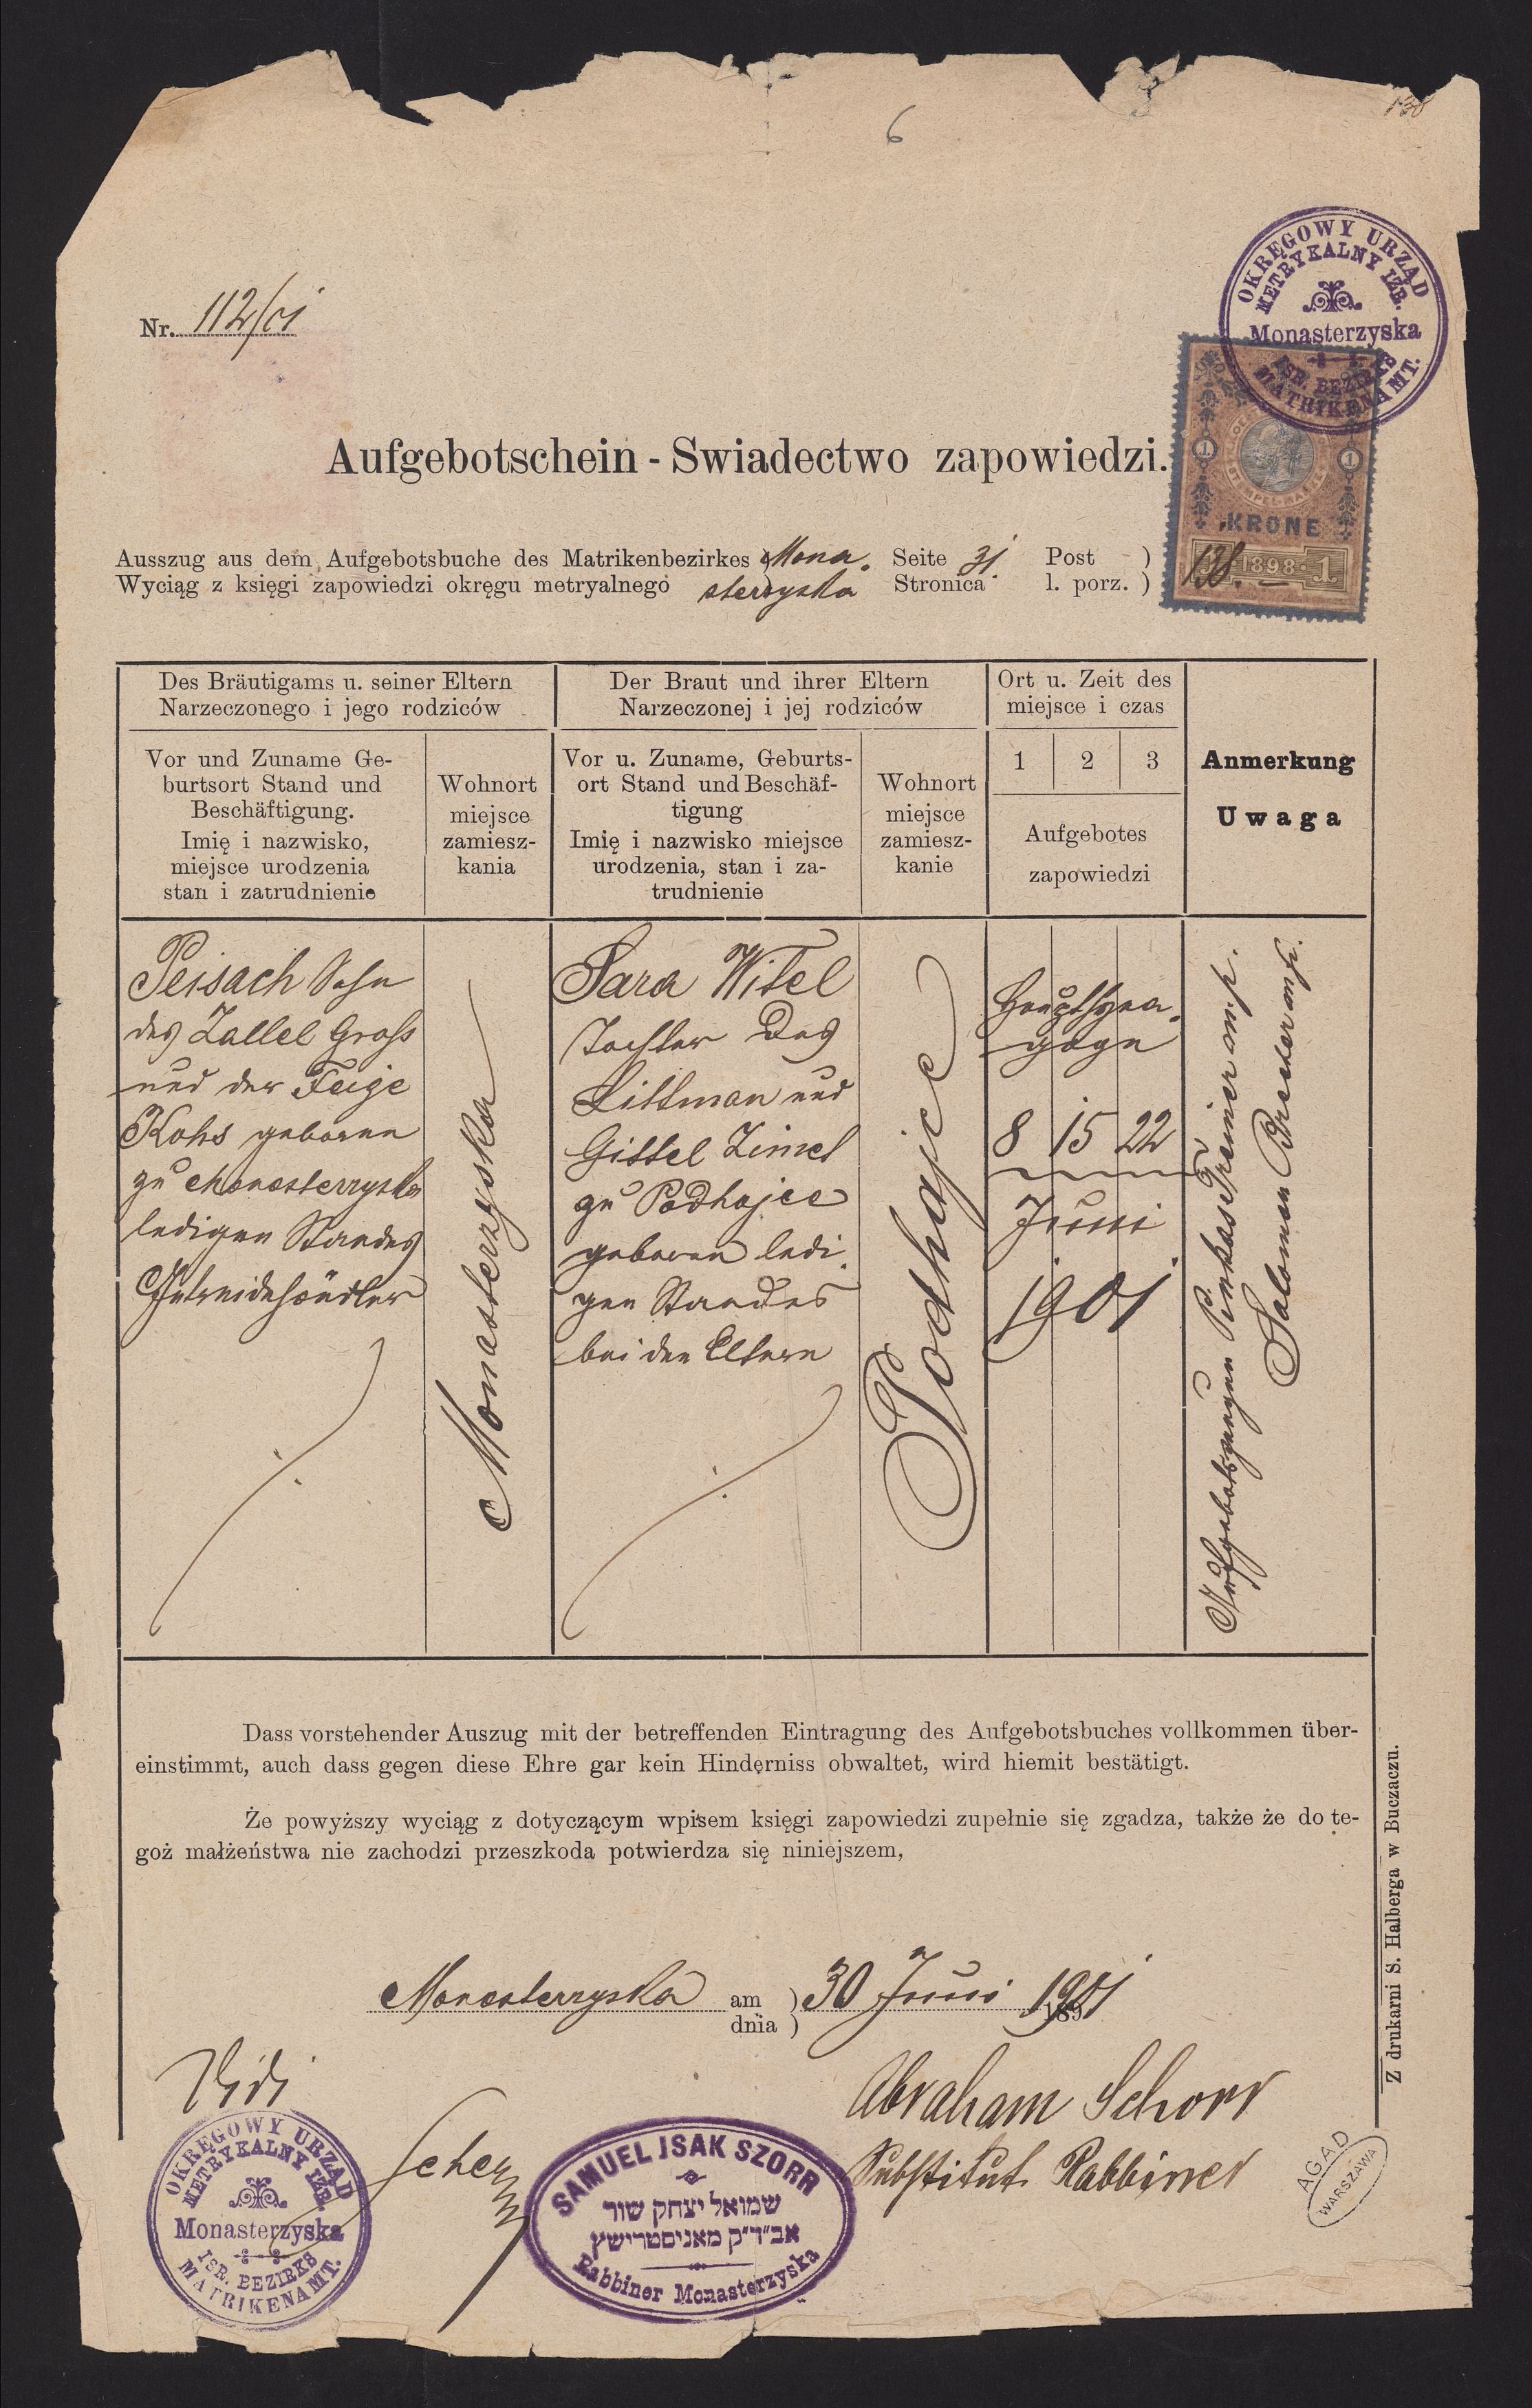 138
6
OKRĘGOWY URZĄD
METRYKALNY IZR.
Monasterzyska
ISR. BEZIRKS
MATRIKENAMT.
Nr. 112/01
Aufgebotschein - Swiadectwo zapowiedzi.
1 1
KRONE
1898 1
138.
Ausszug aus dem Aufgebotsbuche des Matrikenbezirkes Mona. Seite 31 Post )
Wyciąg z księgi zapowiedzi okręgu metryalnego sterzyska Stronica l. porz. )
Des Bräutigams u. seiner Eltern
Narzeczonego i jego rodziców
Der Braut und ihrer Eltern
Narzeczonej i jej rodziców
Ort u. Zeit des
miejsce i czas
Anmerkung
Uwaga
Vor und Zuname Ge-
burtsort Stand und
Beschäftigung.
Imię i nazwisko,
miejsce urodzenia
stan i zatrudnienie
Wohnort
miejsce
zamiesz-
kania
Vor u. Zuname, Geburts-
ort Stand und Beschäf-
tigung
Imię i nazwisko miejsce
urodzenia, stan i za-
trudnienie
Wohnort
miejsce
zamiesz-
kanie
1 2 3
Aufgebotes
zapowiedzi
Peisach Sohn
des Zallel Groß
und der Feige
Kohs geboren
zu Monasterzyska
ledigen Standes
Getreidehändler
Monasterzyska
Sara Witel
Tochter des
Littman und
Gittel Zimet
zu Podhajce
geboren ledi.
gen Standes
bei den Eltern
Podhajce
Hauptsyna.
goge
8 15 22
Juni
1901
Aufgebotszeugen Pinkas Treiner m.p.
Salomon Brecher m.p.
Dass vorstehender Auszug mit der betreffenden Eintragung des Aufgebotsbuches vollkommen über-
einstimmt, auch dass gegen diese Ehre gar kein Hinderniss obwaltet, wird hiemit bestätigt.
Że powyższy wyciąg z dotyczącym wpisem księgi zapowiedzi zupełnie się zgadza, także że do te-
goż małżeństwa nie zachodzi przeszkoda potwierdza się niniejszem,
Z drukarni S. Halberga w Buczaczu.
Monasterzyska am ) 30 Juni 1901
dnia ) 189
Vidi
Abraham Schorr
Substitut Rabbiner
OKRĘGOWY URZĄD
METRYKALNY IZR.
Monasterzyska
ISR. BEZIRKS
MATRIKENAMT.
SAMUEL ISAK SZORR
שמואל יצחק שור
אב״ד״ק מאניסטרישץ
Rabbiner Monasterzyska
AGAD
WARSZAWA